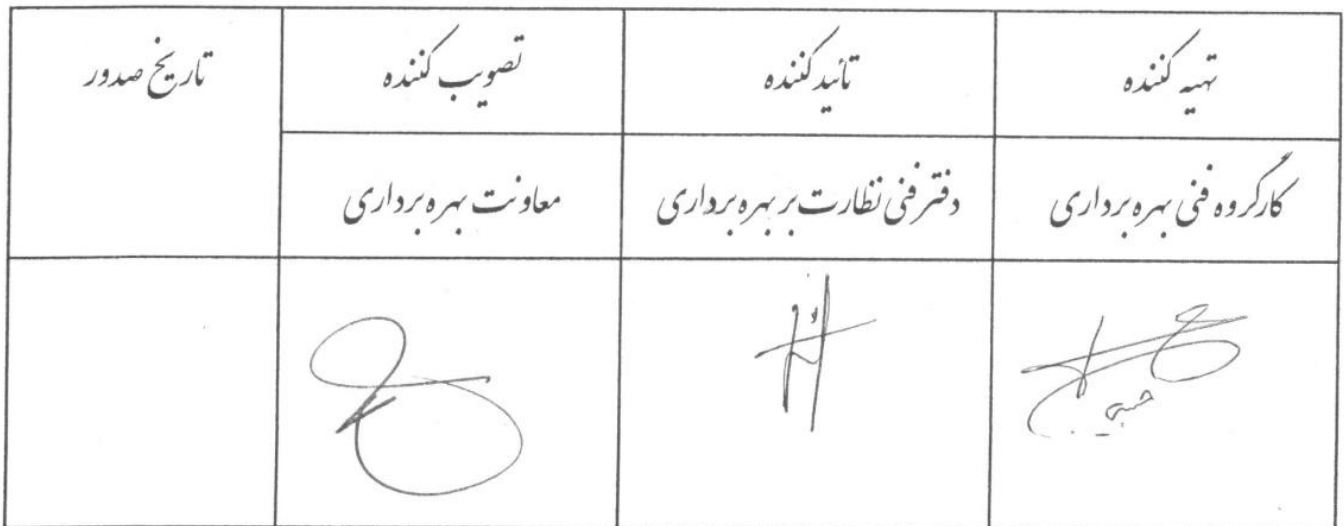 تهیه کننده تائید کننده تصویب کننده تاریخ صدور
کارگروه فنی بهره برداری دفتر فنی نظارت بر بهره برداری معاونت بهره برداری